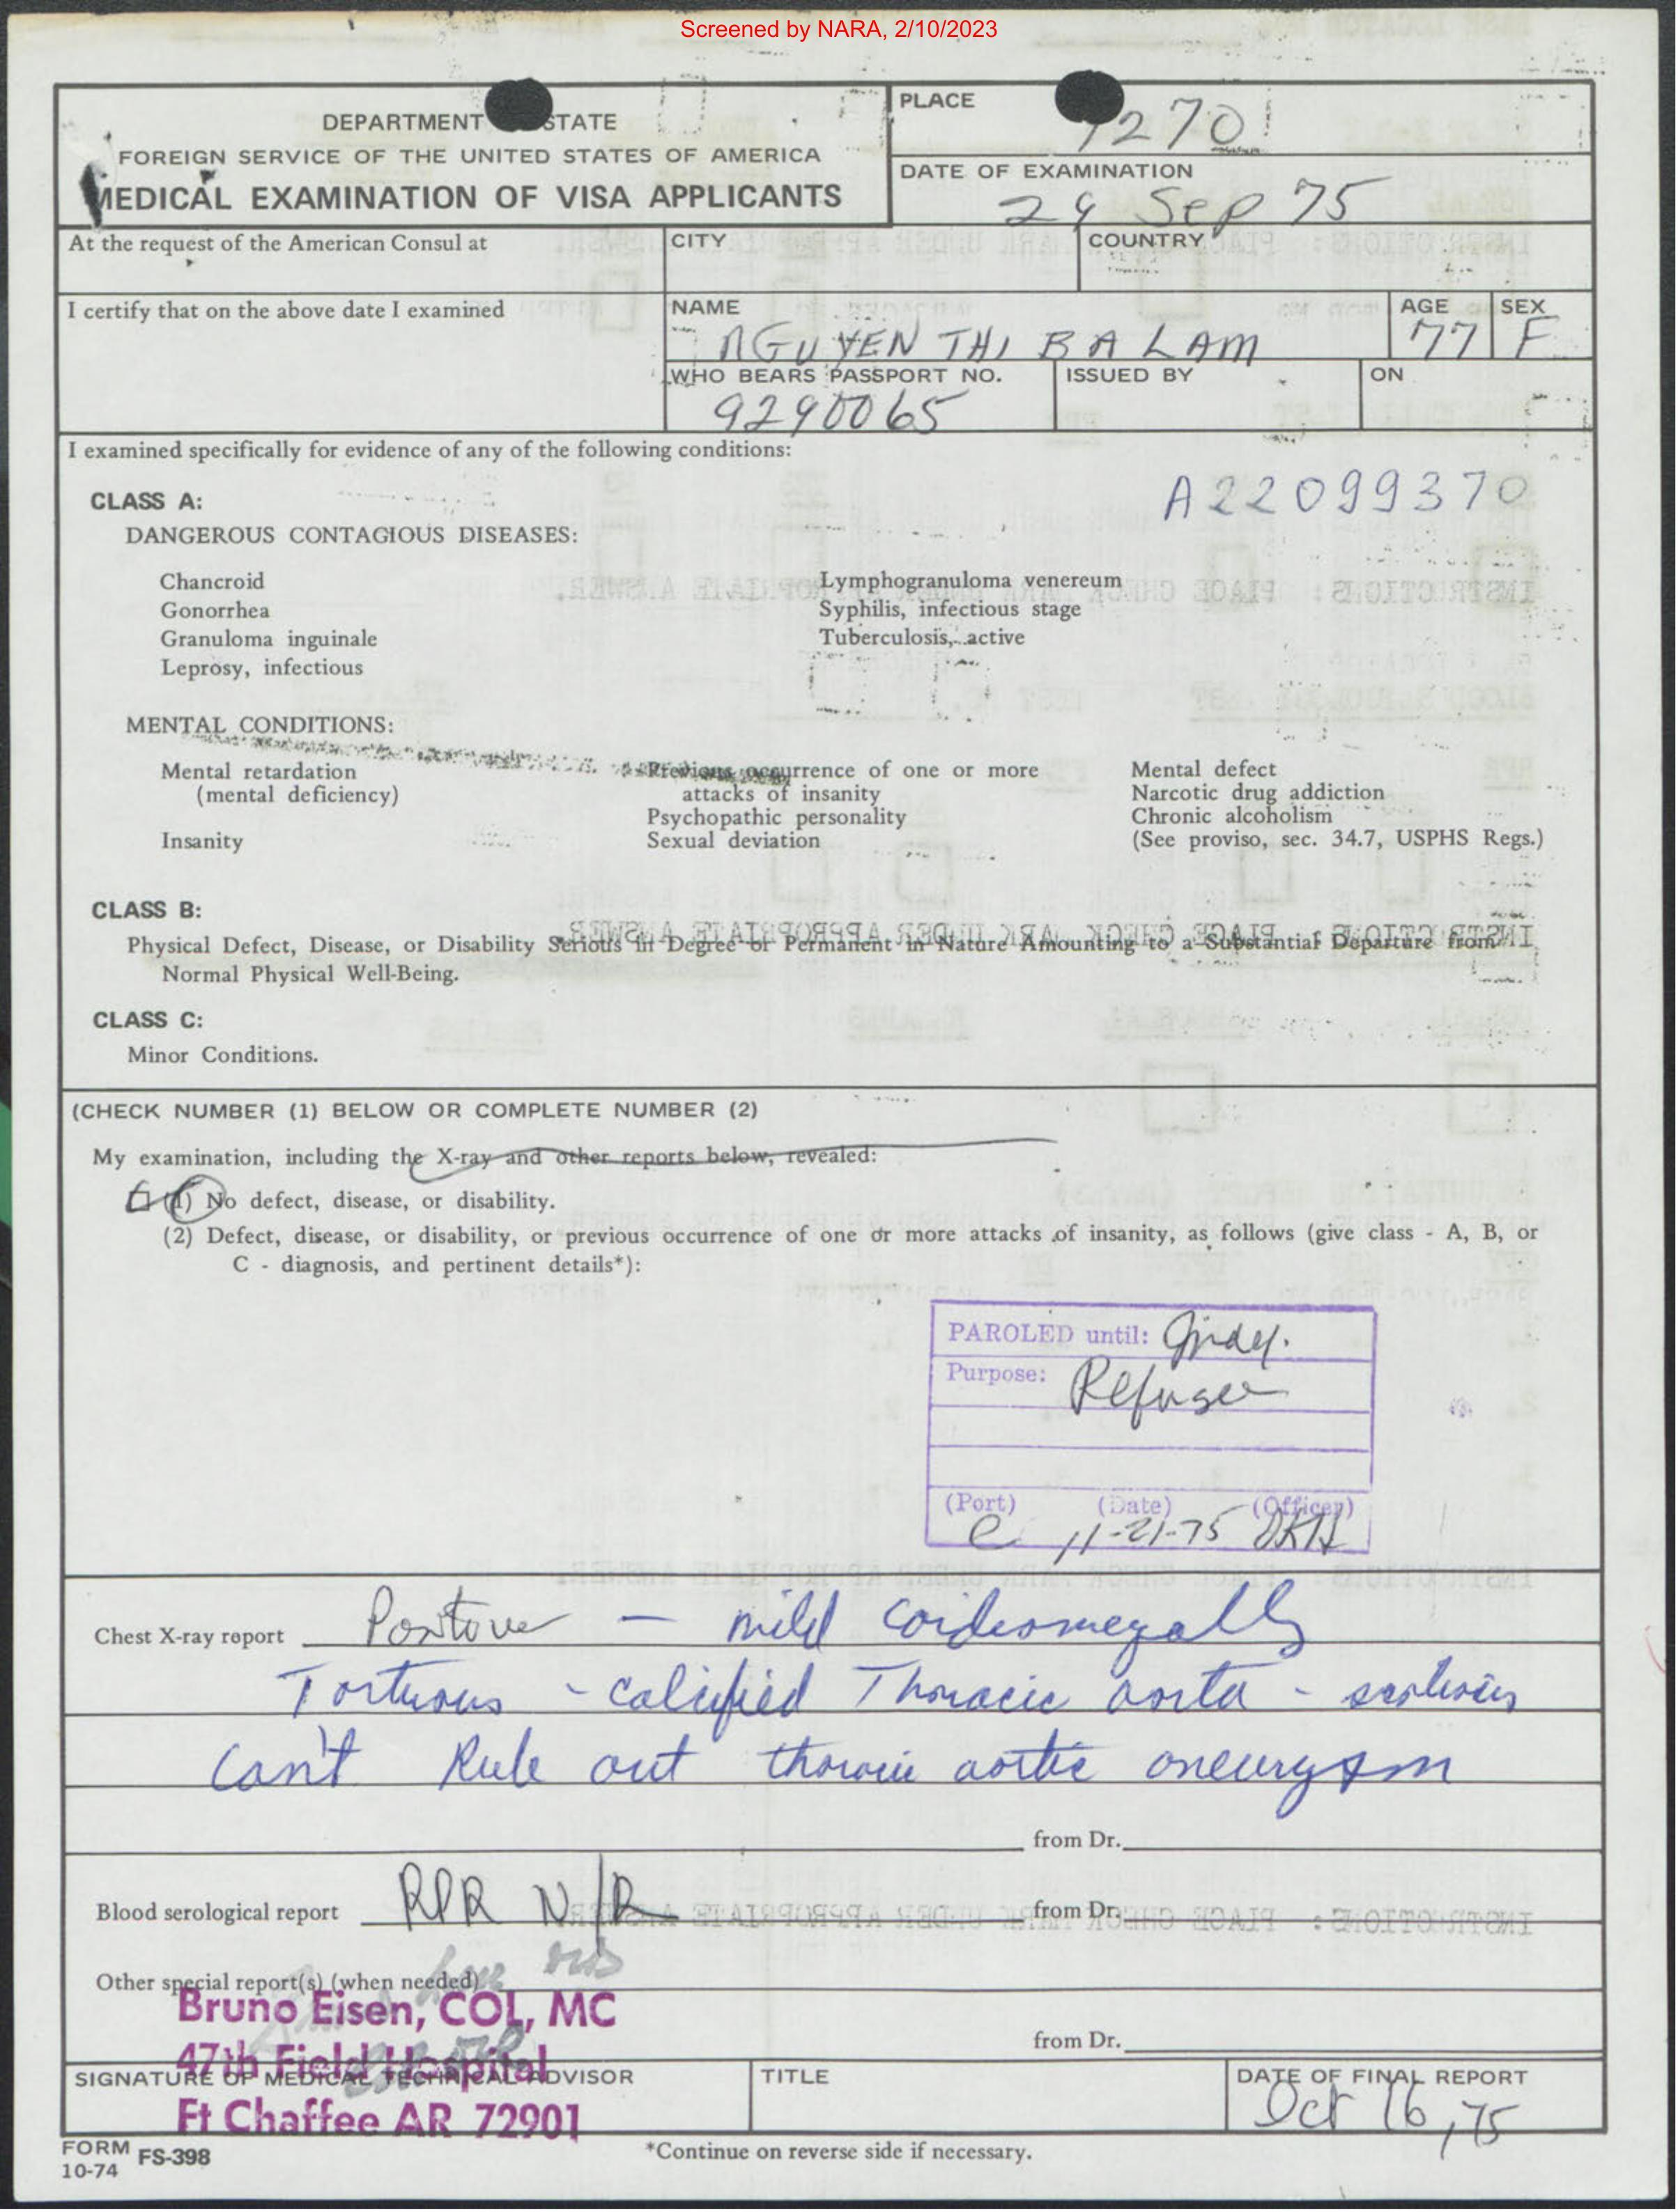 Screened by NARA, 2/10/2023
DEPARTMENT STATE
FOREIGN SERVICE OF THE UNITED STATES OF AMERICA
MEDICAL EXAMINATION OF VISA APPLICANTS
PLACE
9270
DATE OF EXAMINATION
29 Sep 75
At the request of the American Consul at
CITY
COUNTRY
I certify that on the above date I examined
NAME
NGUYEN THI BA LAM
AGE
77
SEX
F
WHO BEARS PASSPORT NO.
9290065
ISSUED BY
ON
I examined specifically for evidence of any of the following conditions:
A22099370
CLASS A:
DANGEROUS CONTAGIOUS DISEASES:
Chancroid
Gonorrhea
Granuloma inguinale
Leprosy, infectious
Lymphogranuloma venereum
Syphilis, infectious stage
Tuberculosis, active
MENTAL CONDITIONS:
Mental retardation
(mental deficiency)
Insanity
Previous occurrence of one or more
attacks of insanity
Psychopathic personality
Sexual deviation
Mental defect
Narcotic drug addiction
Chronic alcoholism
(See proviso, sec. 34.7, USPHS Regs.)
CLASS B:
Physical Defect, Disease, or Disability Serious in Degree or Permanent in Nature Amounting to a Substantial Departure from
Normal Physical Well-Being.
CLASS C:
Minor Conditions.
(CHECK NUMBER (1) BELOW OR COMPLETE NUMBER (2)
My examination, including the X-ray and other reports below, revealed:
(1) No defect, disease, or disability.
(2) Defect, disease, or disability, or previous occurrence of one or more attacks of insanity, as follows (give class - A, B, or
C - diagnosis, and pertinent details*):
PAROLED until: Indef.
Purpose: Refugee
(Port) (Date) (Officer)
11-21-75
Chest X-ray report Positive - mild cardiomegally
Tortuous - calcified Thoracic aorta - scoliosis
Can't Rule out thoracic aortic aneurysm
from Dr.
Blood serological report RPR N/R from Dr.
Other special report(s) (when needed)
Bruno Eisen, COL, MC
47th Field Hospital
Ft Chaffee AR 72901
from Dr.
SIGNATURE OF MEDICAL TECHNICAL ADVISOR
TITLE
DATE OF FINAL REPORT
Oct 16, 75
FORM FS-398
10-74
*Continue on reverse side if necessary.